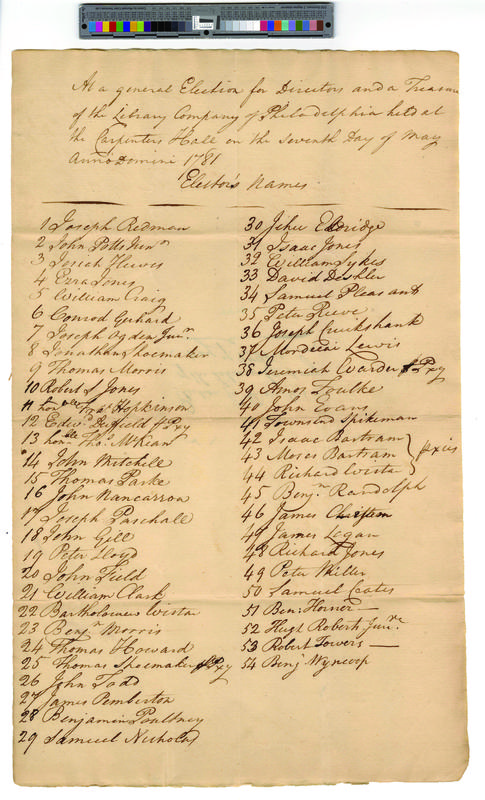 At a general Election for Directors and a Treasurer
of the Library Company of Philadelphia held at
the Carpenters Hall on the Seventh Day of May
Anno Domini 1781
Elector's Names
1 Joseph Redman
2 John Potts
3 Josiah Hewes
4 Ezra Jones
5 William Craig
6 Conrod Gerhard
7 Joseph Ogden Junr.
8 Jonathan Shoemaker
9 Thomas Morris
10 Robert S Jones
11 honble Fras Hopkinson
12 Edwd Duffield Pxy
13 honble Thos. McKean
14 John Mitchell
15 Thomas Parke
16 John Nancarrow
17 Joseph Paschall
18 John Gill
19 Peter Lloyd
20 John Field
21 William Clark
22 Bartholomew Wistar
23 Benjn Morris
24 Thomas Howard
25 Thomas Shoemaker Pxy
26 John Tod
27 James Pemberton
28 Benjamin Poultney
29 Samuel Nicholas
30 Jehu Eldridge
31 Isaac Jones
32 William Sykes
33 David Deshler
34 Samuel Pleasants
35 Peter Reeve
36 Joseph Cruikshank
37 Mordecai Lewis
38 Jeremiah Warder Pxy
39 Amos Foulke
40 John Evans
41 Townsend Speakman
42 Isaac Bartram
43 Moses Bartram
44 Richard Wistar
pxies
45 Benjn Randolph
46 James
47 James Logan
48 Richard Jones
49 Peter Miller
50 Samuel Coates
51 Benj Horner
52 Hugh Roberts Junr.
53 Robert Towers
54 Benj Wyncoop